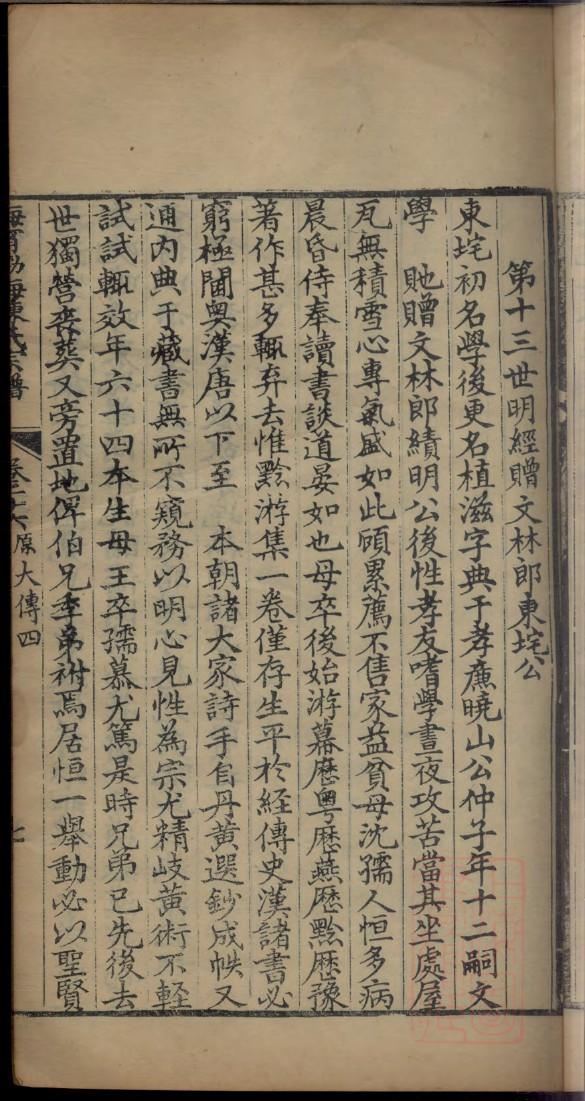 第十三世明經贈文林郎東垞公
東垞初名學後更名植滋字典于孝廉曉山公仲子年十二嗣文
學　貤贈文林郎績明公後性孝友嗜學晝夜攻苦當其坐處屋
瓦無積雪心專氣盛如此頋累薦不售家益貧母沈孺人恒多病
晨昏侍奉讀書談道晏如也母卒後始游幕歷粤歷燕歷黔歷豫
著作甚多輒弃去惟黔游集一卷僅存生平於經傳史漢諸書必
窮極閫奥漢唐以下至　本朝諸大家詩手自丹黃選鈔成帙又
通內典于藏書無所不窺務以明心見性為宗尤精岐黃術不軽
試試輒效年六十四本生母王卒孺慕尤篤是時兄弟已先後去
世獨營喪葬又旁置地俾伯兄季弟祔焉居恒一舉動必以聖賢
海寧渤海陳氏宗譜　卷二十六原　大傳四　七